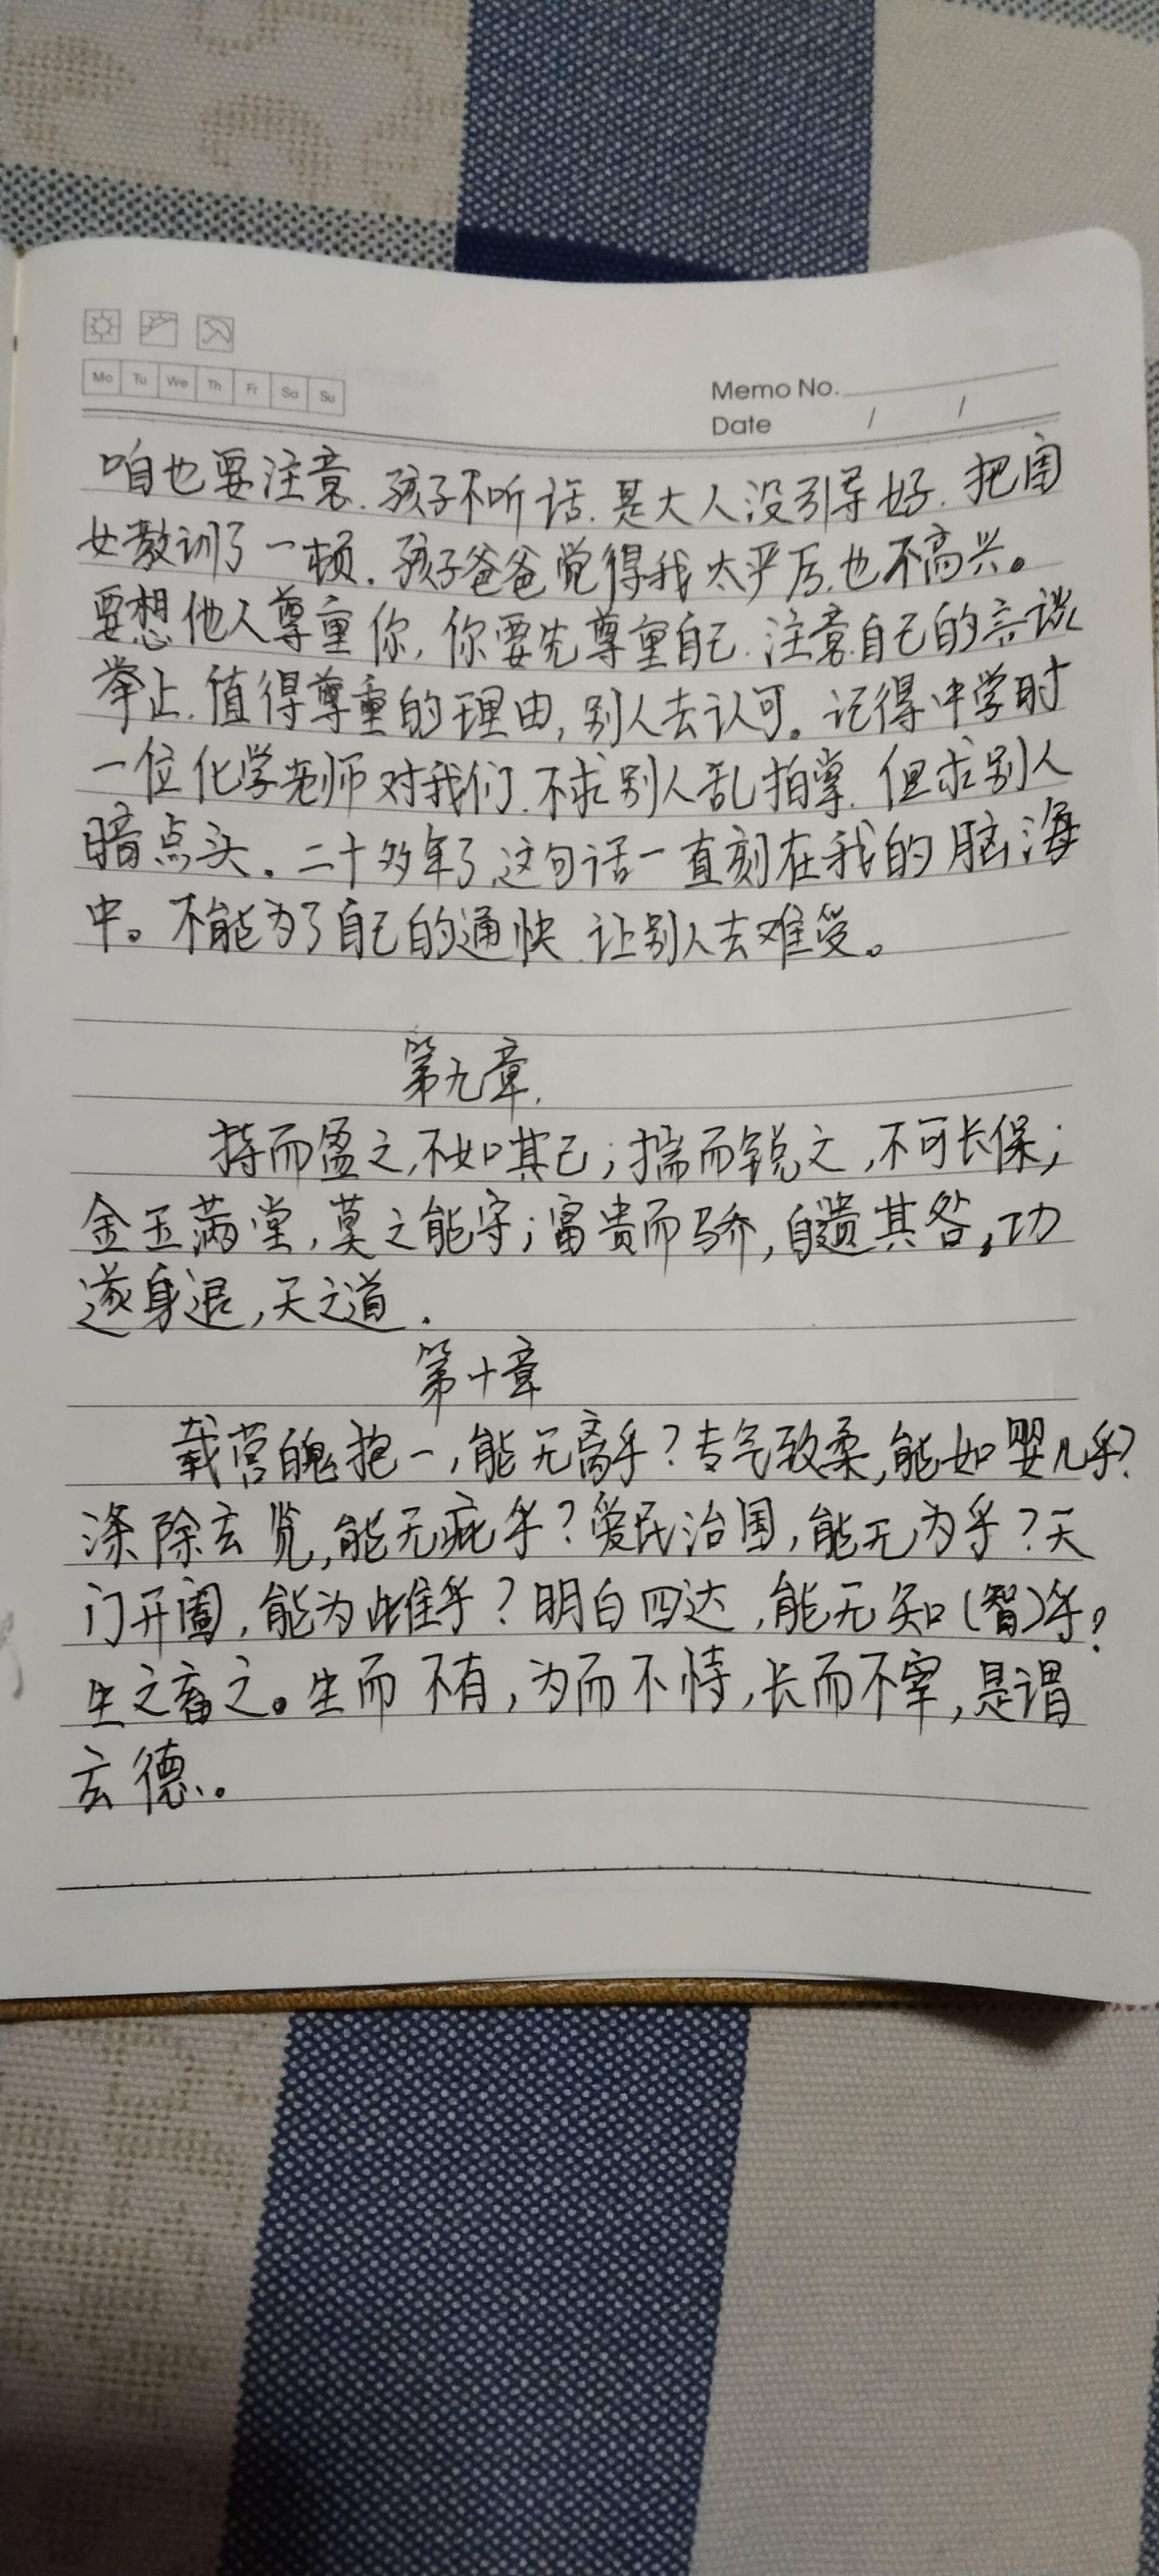 Mo Tu We Th Fr Sa Su
Memo No.
Date / /
咱也要注意.孩子不听话.是大人没引导好.把闺
女教训了一顿.孩子爸爸觉得我太严厉.也不高兴。
要想他人尊重你,你要先尊重自己.注意自己的言谈
举止.值得尊重的理由,别人去认可。记得中学时
一位化学老师对我们.不求别人乱拍掌.但求别人
暗点头.二十多年了.这句话一直刻在我的脑海
中。不能为了自己的通快.让别人去难受。
第九章.
持而盈之,不如其己;揣而锐之,不可长保;
金玉满堂,莫之能守;富贵而骄,自遗其咎。功
遂身退,天之道.
第十章
载营魄抱一,能无离乎?专气致柔,能如婴儿乎?
涤除玄览,能无疵乎?爱民治国,能无为乎?天
门开阖,能为雌乎?明白四达,能无知(智)乎?
生之畜之。生而不有,为而不恃,长而不宰,是谓
玄德。